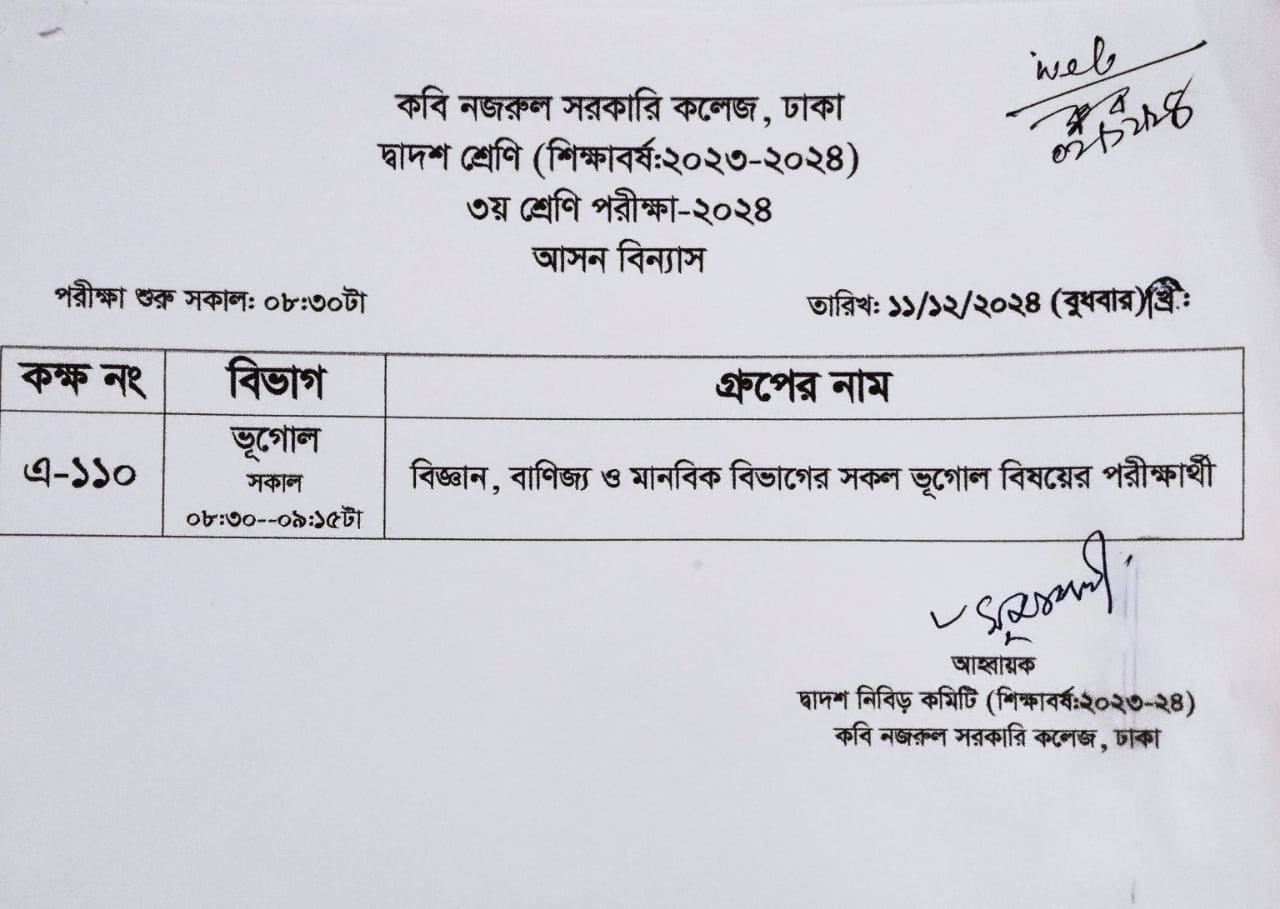 web
কবি নজরুল সরকারি কলেজ, ঢাকা
দ্বাদশ শ্রেণি (শিক্ষাবর্ষ:২০২৩-২০২৪)
৩য় শ্রেণি পরীক্ষা-২০২৪
আসন বিন্যাস
পরীক্ষা শুরু সকাল: ০৮:৩০টা
তারিখ: ১১/১২/২০২৪ (বুধবার)খ্রি:
কক্ষ নং বিভাগ গ্রুপের নাম
ভূগোল
এ-১১০ সকাল বিজ্ঞান, বাণিজ্য ও মানবিক বিভাগের সকল ভূগোল বিষয়ের পরীক্ষার্থী
০৮:৩০--০৯:১৫টা
আহ্বায়ক
দ্বাদশ নিবিড় কমিটি (শিক্ষাবর্ষ:২০২৩-২৪)
কবি নজরুল সরকারি কলেজ, ঢাকা